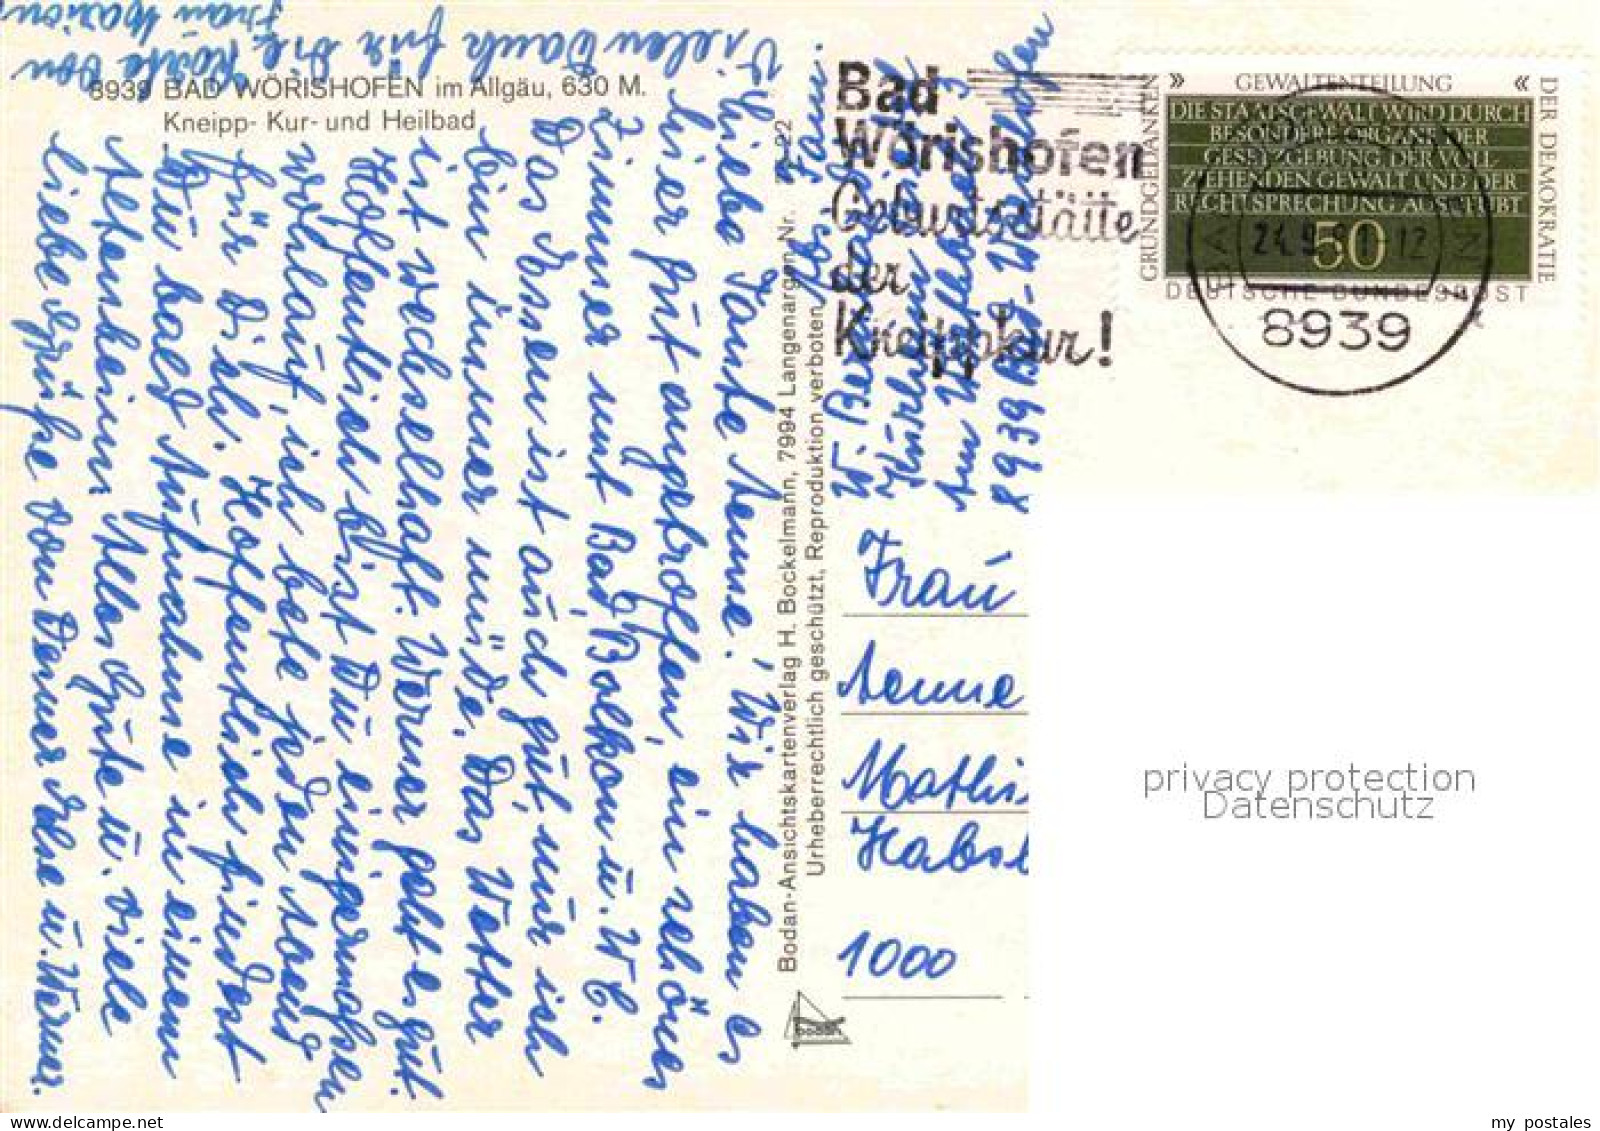 8939 BAD WÖRISHOFEN im Allgäu, 630 M.
Kneipp- Kur- und Heilbad
Liebe Tante Aenne! Wir haben es
hier gut angetroffen, ein schönes
Zimmer mit Bad, Balkon u. WC.
Das Essen ist auch gut, nur ich
bin immer müde. Das Wetter
ist wechselhaft. Werner geht es gut.
Hoffentlich bist Du einigermaßen
wohlauf, ich bete jeden Abend
für Dich. Hoffentlich findest
Du bald Aufnahme in einem
Altersheim. Alles Gute u. viele
liebe Grüße von Deiner Ilse u. Werner.
Vielen Dank für die Karte von
Frau Marion
Bodan-Ansichtskartenverlag H. Bockelmann, 7994 Langenargen Nr.
Urheberrechtlich geschützt, Reproduktion verboten
bodan
W.
Kurheim
8939 Bad Wörishofen
Bad
Wörishofen
Geburtsstätte
der
Kneippkur!
» GEWALTENTEILUNG «
GRUNDGEDANKEN
DER DEMOKRATIE
DIE STAATSGEWALT WIRD DURCH
BESONDERE ORGANE DER
GESETZGEBUNG DER VOLL
ZIEHENDEN GEWALT UND DER
RECHTSPRECHUNG AUSGEÜBT
50
DEUTSCHE BUNDESPOST
8939
Frau
Aenne
Mathi
Habs
1000
privacy protection
Datenschutz
www.delcampe.net
my_postales